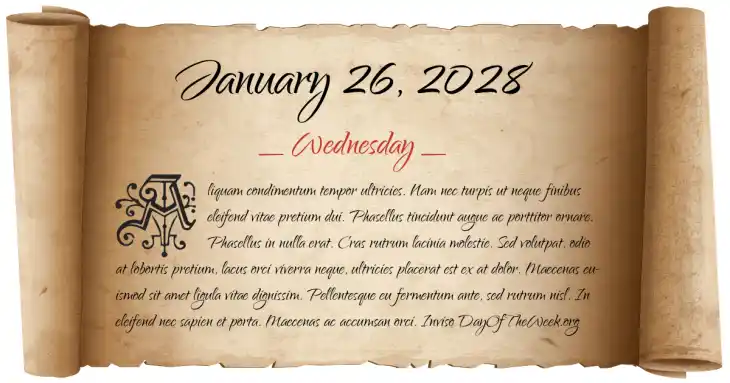 January 26, 2028
Wednesday
Aliquam condimentum tempor ultricies. Nam nec turpis ut neque finibus
eleifend vitae pretium dui. Phasellus tincidunt augue ac porttitor ornare.
Phasellus in nulla erat. Cras rutrum lacinia molestie. Sed volutpat, odio
at lobortis pretium, lacus orci viverra neque, ultricies placerat est ex at dolor. Maecenas eu-
ismod sit amet ligula vitae dignissim. Pellentesque eu fermentum ante, sed rutrum nisl. In
eleifend nec sapien et porta. Maecenas ac accumsan orci. Inviso DayOfTheWeek.org